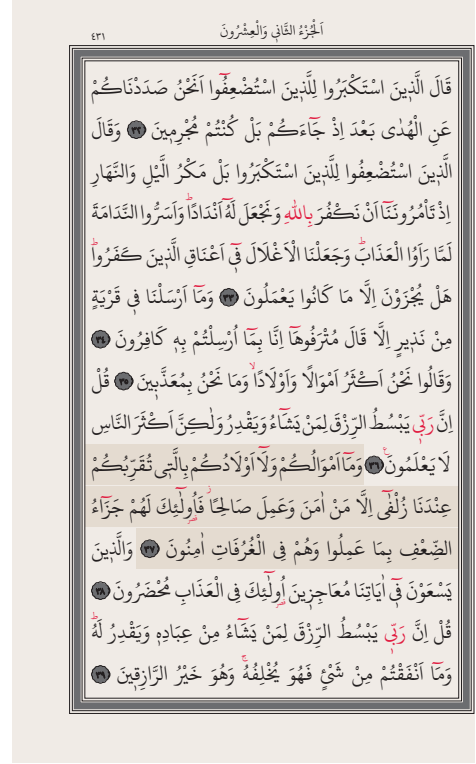 اَلْجُزْءُ الثَّانٖي وَالْعِشْرُونَ
٤٣١
قَالَ الَّذٖينَ اسْتَكْبَرُوا لِلَّذٖينَ اسْتُضْعِفُٓوا اَنَحْنُ صَدَدْنَاكُمْ
عَنِ الْهُدٰى بَعْدَ اِذْ جَٓاءَكُمْ بَلْ كُنْتُمْ مُجْرِمٖينَ ﴿٣٢﴾ وَقَالَ
الَّذٖينَ اسْتُضْعِفُوا لِلَّذٖينَ اسْتَكْبَرُوا بَلْ مَكْرُ الَّيْلِ وَالنَّهَارِ
اِذْ تَأْمُرُونَـنَٓا اَنْ نَكْفُرَ بِاللّٰهِ وَنَجْعَلَ لَهُٓ اَنْدَادًاؕ وَاَسَرُّوا النَّدَامَةَ
لَمَّا رَاَوُا الْعَذَابَؕ وَجَعَلْنَا الْاَغْلَالَ فٖٓي اَعْنَاقِ الَّذٖينَ كَفَرُواؕ
هَلْ يُجْزَوْنَ اِلَّا مَا كَانُوا يَعْمَلُونَ ﴿٣٣﴾ وَمَٓا اَرْسَلْنَا فٖي قَرْيَةٍ
مِنْ نَذٖيرٍ اِلَّا قَالَ مُتْرَفُوهَٓا اِنَّا بِمَٓا اُرْسِلْتُمْ بِهٖ كَافِرُونَ ﴿٣٤﴾
وَقَالُوا نَحْنُ اَكْثَرُ اَمْوَالًا وَاَوْلَادًاۙ وَمَا نَحْنُ بِمُعَذَّبٖينَ ﴿٣٥﴾ قُلْ
اِنَّ رَبّٖي يَبْسُطُ الرِّزْقَ لِمَنْ يَشَٓاءُ وَيَقْدِرُ وَلٰكِنَّ اَكْثَرَ النَّاسِ
لَا يَعْلَمُونَ۟ ﴿٣٦﴾ وَمَٓا اَمْوَالُكُمْ وَلَٓا اَوْلَادُكُمْ بِالَّتٖي تُقَرِّبُكُمْ
عِنْدَنَا زُلْفٰٓى اِلَّا مَنْ اٰمَنَ وَعَمِلَ صَالِحًاؗ فَاُو۬لٰٓئِكَ لَهُمْ جَزَٓاءُ
الضِّعْفِ بِمَا عَمِلُوا وَهُمْ فِي الْغُرُفَاتِ اٰمِنُونَ ﴿٣٧﴾ وَالَّذٖينَ
يَسْعَوْنَ فٖٓي اٰيَاتِنَا مُعَاجِزٖينَ اُو۬لٰٓئِكَ فِي الْعَذَابِ مُحْضَرُونَ ﴿٣٨﴾
قُلْ اِنَّ رَبّٖي يَبْسُطُ الرِّزْقَ لِمَنْ يَشَٓاءُ مِنْ عِبَادِهٖ وَيَقْدِرُ لَهُؕ
وَمَٓا اَنْفَقْتُمْ مِنْ شَيْءٍ فَهُوَ يُخْلِفُهُۚ وَهُوَ خَيْرُ الرَّازِقٖينَ ﴿٣٩﴾